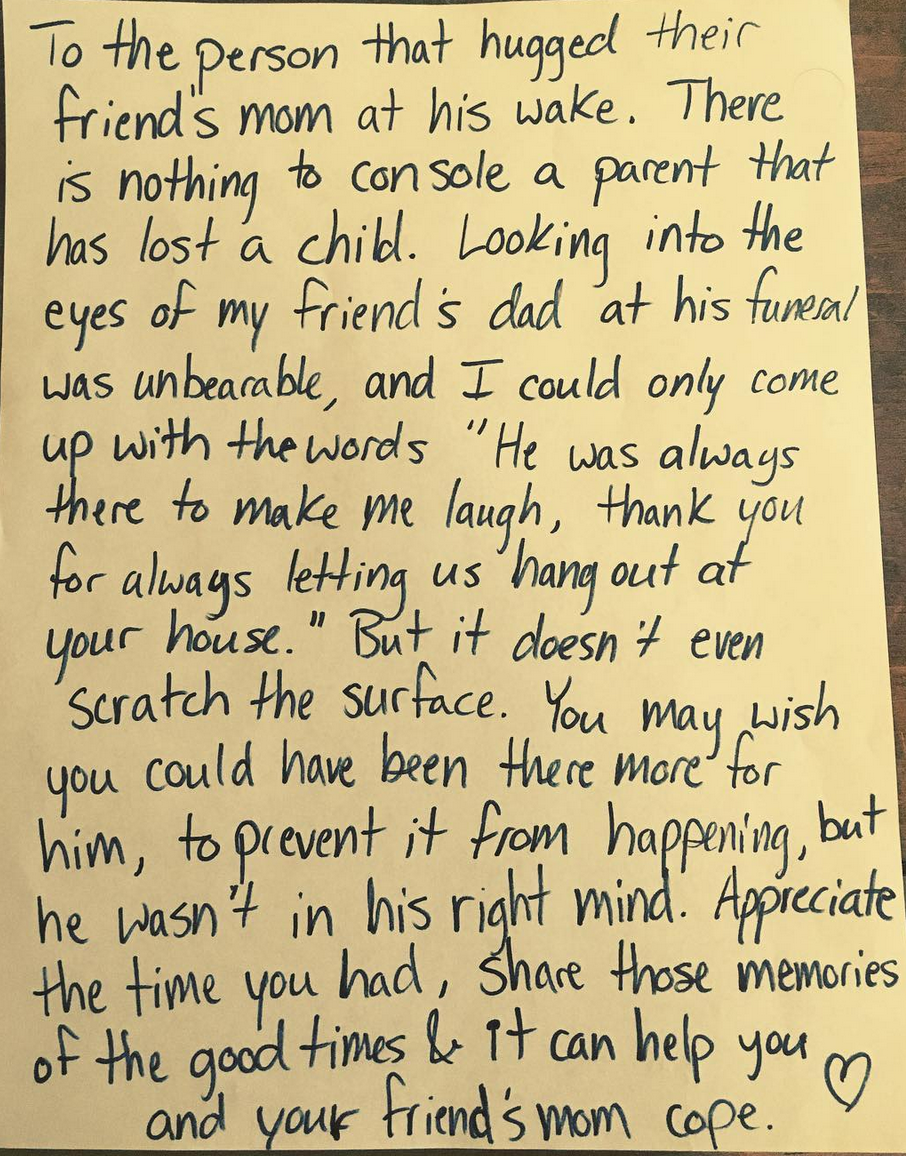 To the person that hugged their
friend's mom at his wake. There
is nothing to console a parent that
has lost a child. Looking into the
eyes of my friend's dad at his funeral
was unbearable, and I could only come
up with the words "He was always
there to make me laugh, thank you
for always letting us hang out at
your house." But it doesn't even
scratch the surface. You may wish
you could have been there more for
him, to prevent it from happening, but
he wasn't in his right mind. Appreciate
the time you had, share those memories
of the good times & it can help you
and your friend's mom cope. ♡